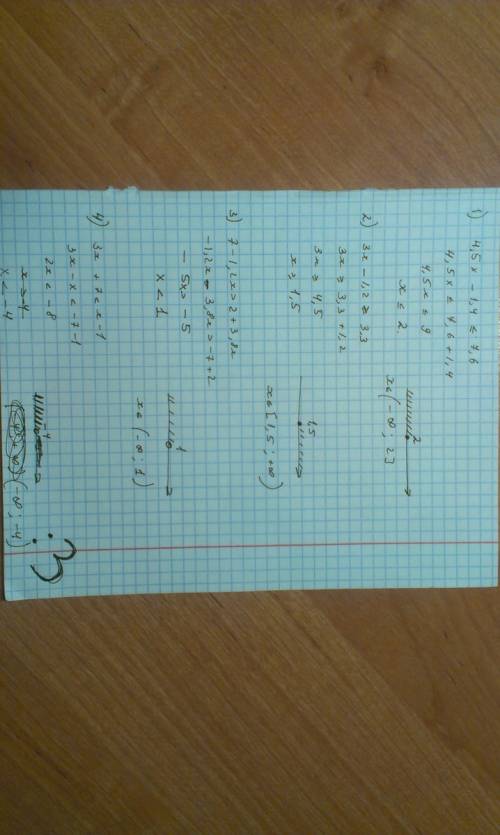 1) 4,5x - 1,4 ≤ 7,6
4,5x ≤ 7,6 + 1,4
4,5x ≤ 9
x ≤ 2
2
x ∈ (-∞; 2]
2) 3x - 1,2 ≥ 3,3
3x ≥ 3,3 + 1,2
3x ≥ 4,5
x ≥ 1,5
1,5
x ∈ [1,5; +∞)
3) 7 - 1,2x > 2 + 3,8x
-1,2x - 3,8x > -7 + 2
-5x > -5
x < 1
1
x ∈ (-∞; 1)
4) 3x + 7 < x - 1
3x - x < -7 - 1
2x < -8
x < -4
-4
(-∞; -4)
:3